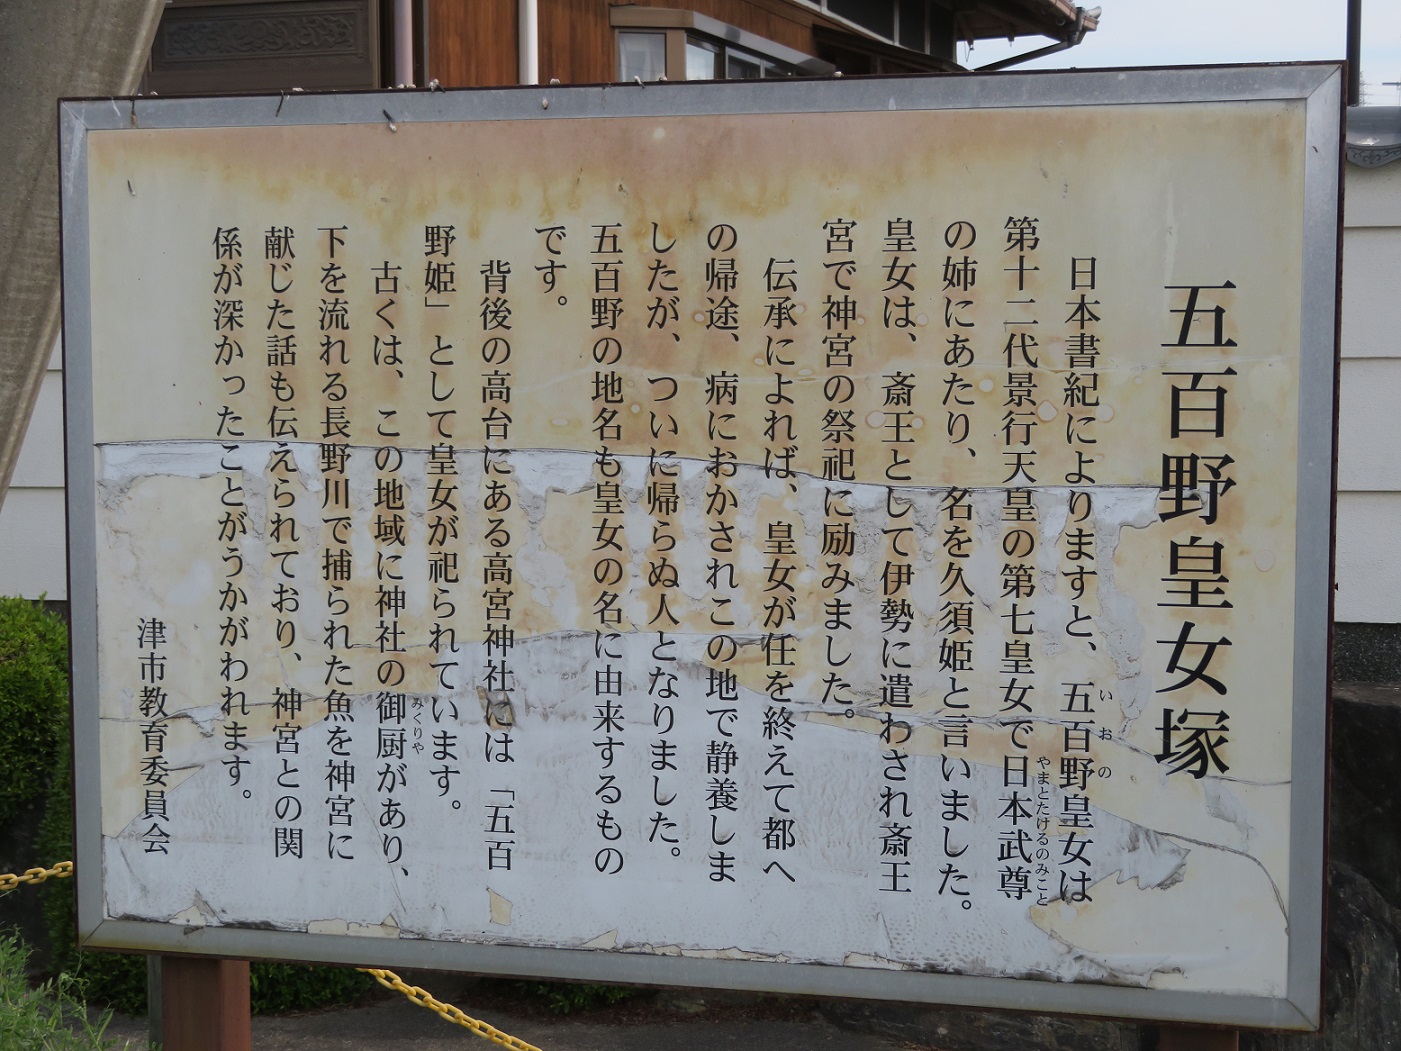 五百野皇女塚
日本書紀によりますと、五百野皇女は
いおの
第十二代景行天皇の第七皇女で日本武尊
やまとたけるのみこと
の姉にあたり、名を久須姫と言いました。
皇女は、斎王として伊勢に遣わされ斎王
宮で神宮の祭祀に励みました。
伝承によれば、皇女が任を終えて都へ
の帰途、病におかされこの地で静養しま
したが、ついに帰らぬ人となりました。
五百野の地名も皇女の名に由来するもの
です。
背後の高台にある高宮神社には「五百
野姫」として皇女が祀られています。
古くは、この地域に神社の御厨があり、
みくりや
下を流れる長野川で捕られた魚を神宮に
献じた話も伝えられており、神宮との関
係が深かったことがうかがわれます。
津市教育委員会